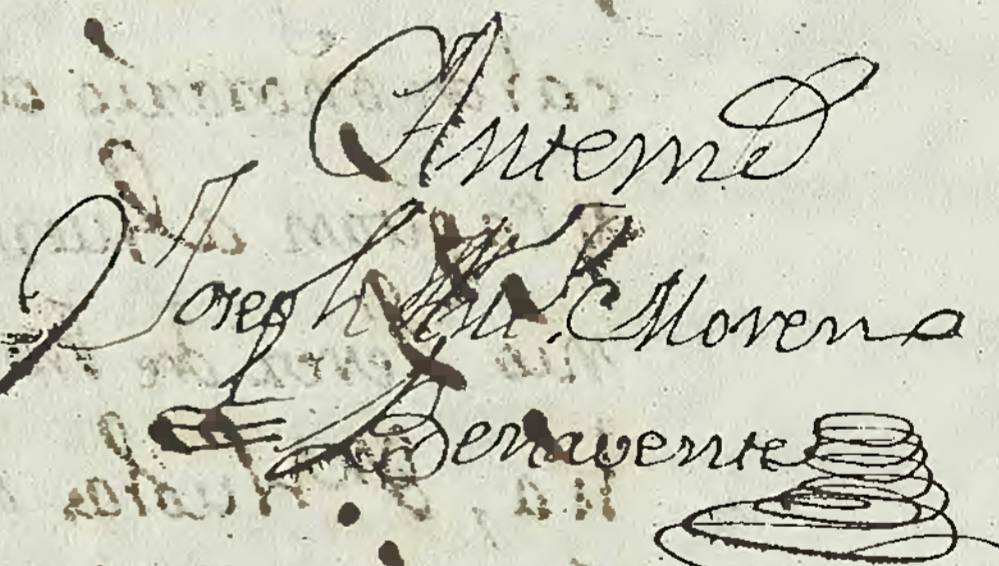 Antemi
Joseph Moreno
Benavente